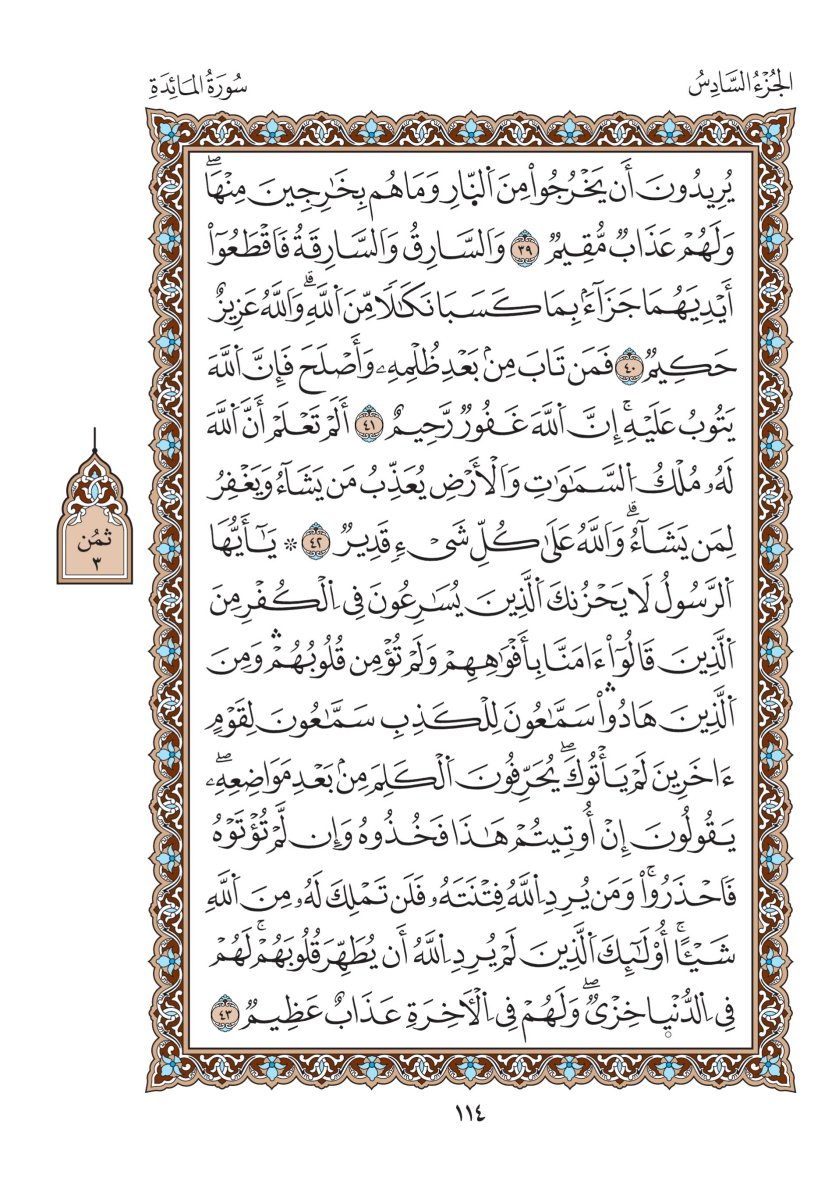 الجُزْءُ السَّادِسُ
سُورَةُ المَائِدَةِ
يُرِيدُونَ أَن يَخْرُجُواْ مِنَ اَ۬لنّ۪ارِ وَمَا هُم بِخَٰرِجِينَ مِنْهَاۖ
وَلَهُمْ عَذَابٞ مُّقِيمٞ ۝٣٩ وَالسَّارِقُ وَالسَّارِقَةُ فَاقْطَعُوٓاْ
أَيْدِيَهُمَا جَزَآءَۢ بِمَا كَسَبَا نَكَٰلاٗ مِّنَ اَ۬للَّهِۗ وَاللَّهُ عَزِيزٌ
حَكِيمٞ ۝٤٠ فَمَن تَابَ مِنۢ بَعْدِ ظُلْمِهِۦ وَأَصْلَحَ فَإِنَّ اَ۬للَّهَ
يَتُوبُ عَلَيْهِۚ إِنَّ اَ۬للَّهَ غَفُورٞ رَّحِيمٌ ۝٤١ أَلَمْ تَعْلَمْ أَنَّ اَ۬للَّهَ
لَهُۥ مُلْكُ اُ۬لسَّمَٰوَٰتِ وَالْأَرْضِ يُعَذِّبُ مَن يَشَآءُ وَيَغْفِرُ
لِمَن يَشَآءُۗ وَاللَّهُ عَلَىٰ كُلِّ شَےْءٖ قَدِيرٞ ۝٤٢ ۞ يَٰٓأَيُّهَا
اَ۬لرَّسُولُ لَا يَحْزُنكَ اَ۬لَّذِينَ يُسَٰرِعُونَ فِے اِ۬لْكُفْرِ مِنَ
اَ۬لَّذِينَ قَالُوٓاْ ءَامَنَّا بِأَفْوَٰهِهِمْ وَلَمْ تُؤْمِن قُلُوبُهُمْۛ وَمِنَ
اَ۬لَّذِينَ هَادُواْۛ سَمَّٰعُونَ لِلْكَذِبِ سَمَّٰعُونَ لِقَوْمٍ
ءَاخَرِينَ لَمْ يَأْتُوكَۖ يُحَرِّفُونَ اَ۬لْكَلِمَ مِنۢ بَعْدِ مَوَاضِعِهِۦۖ
يَقُولُونَ إِنْ أُوتِيتُمْ هَٰذَا فَخُذُوهُ وَإِن لَّمْ تُؤْتَوْهُ
فَاحْذَرُواْۚ وَمَن يُرِدِ اِ۬للَّهُ فِتْنَتَهُۥ فَلَن تَمْلِكَ لَهُۥ مِنَ اَ۬للَّهِ
شَيْـًٔاۚ أُوْلَٰٓئِكَ اَ۬لَّذِينَ لَمْ يُرِدِ اِ۬للَّهُ أَن يُطَهِّرَ قُلُوبَهُمْۚ لَهُمْ
فِے اِ۬لدُّنْي۪ا خِزْيٞۖ وَلَهُمْ فِے اِ۬لْأٓخِرَةِ عَذَابٌ عَظِيمٞ ۝٤٣
ثمُن
٣
١١٤